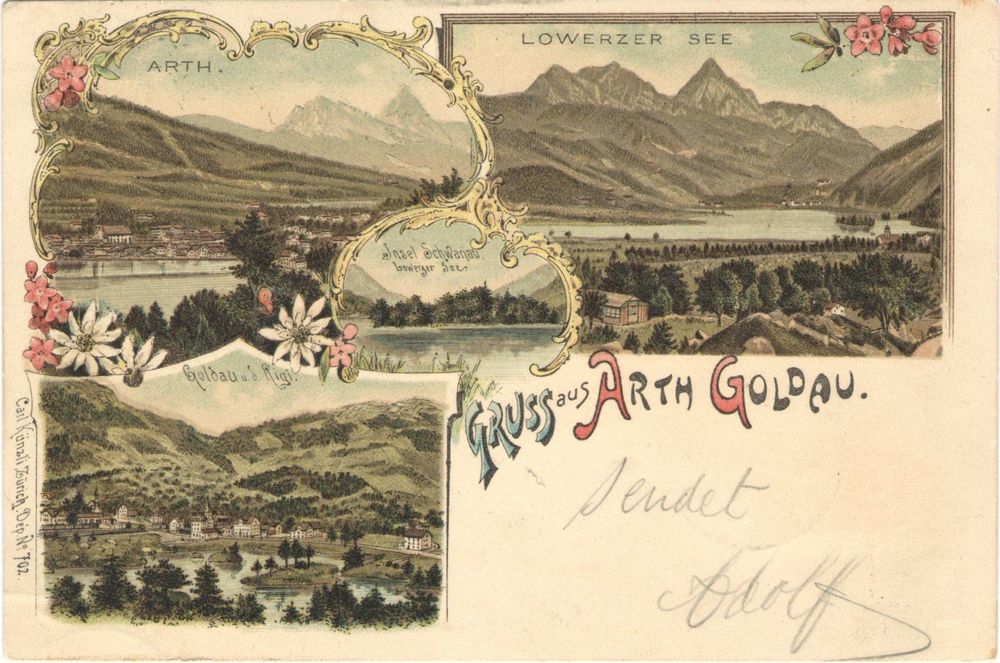 ARTH.
LOWERZER SEE
Insel Schwanau
Lowerzer See.
Goldau u. d. Rigi.
GRUSS aus ARTH GOLDAU.
Carl Künzli, Zürich. Dép. № 702.
Sendet
Adolf